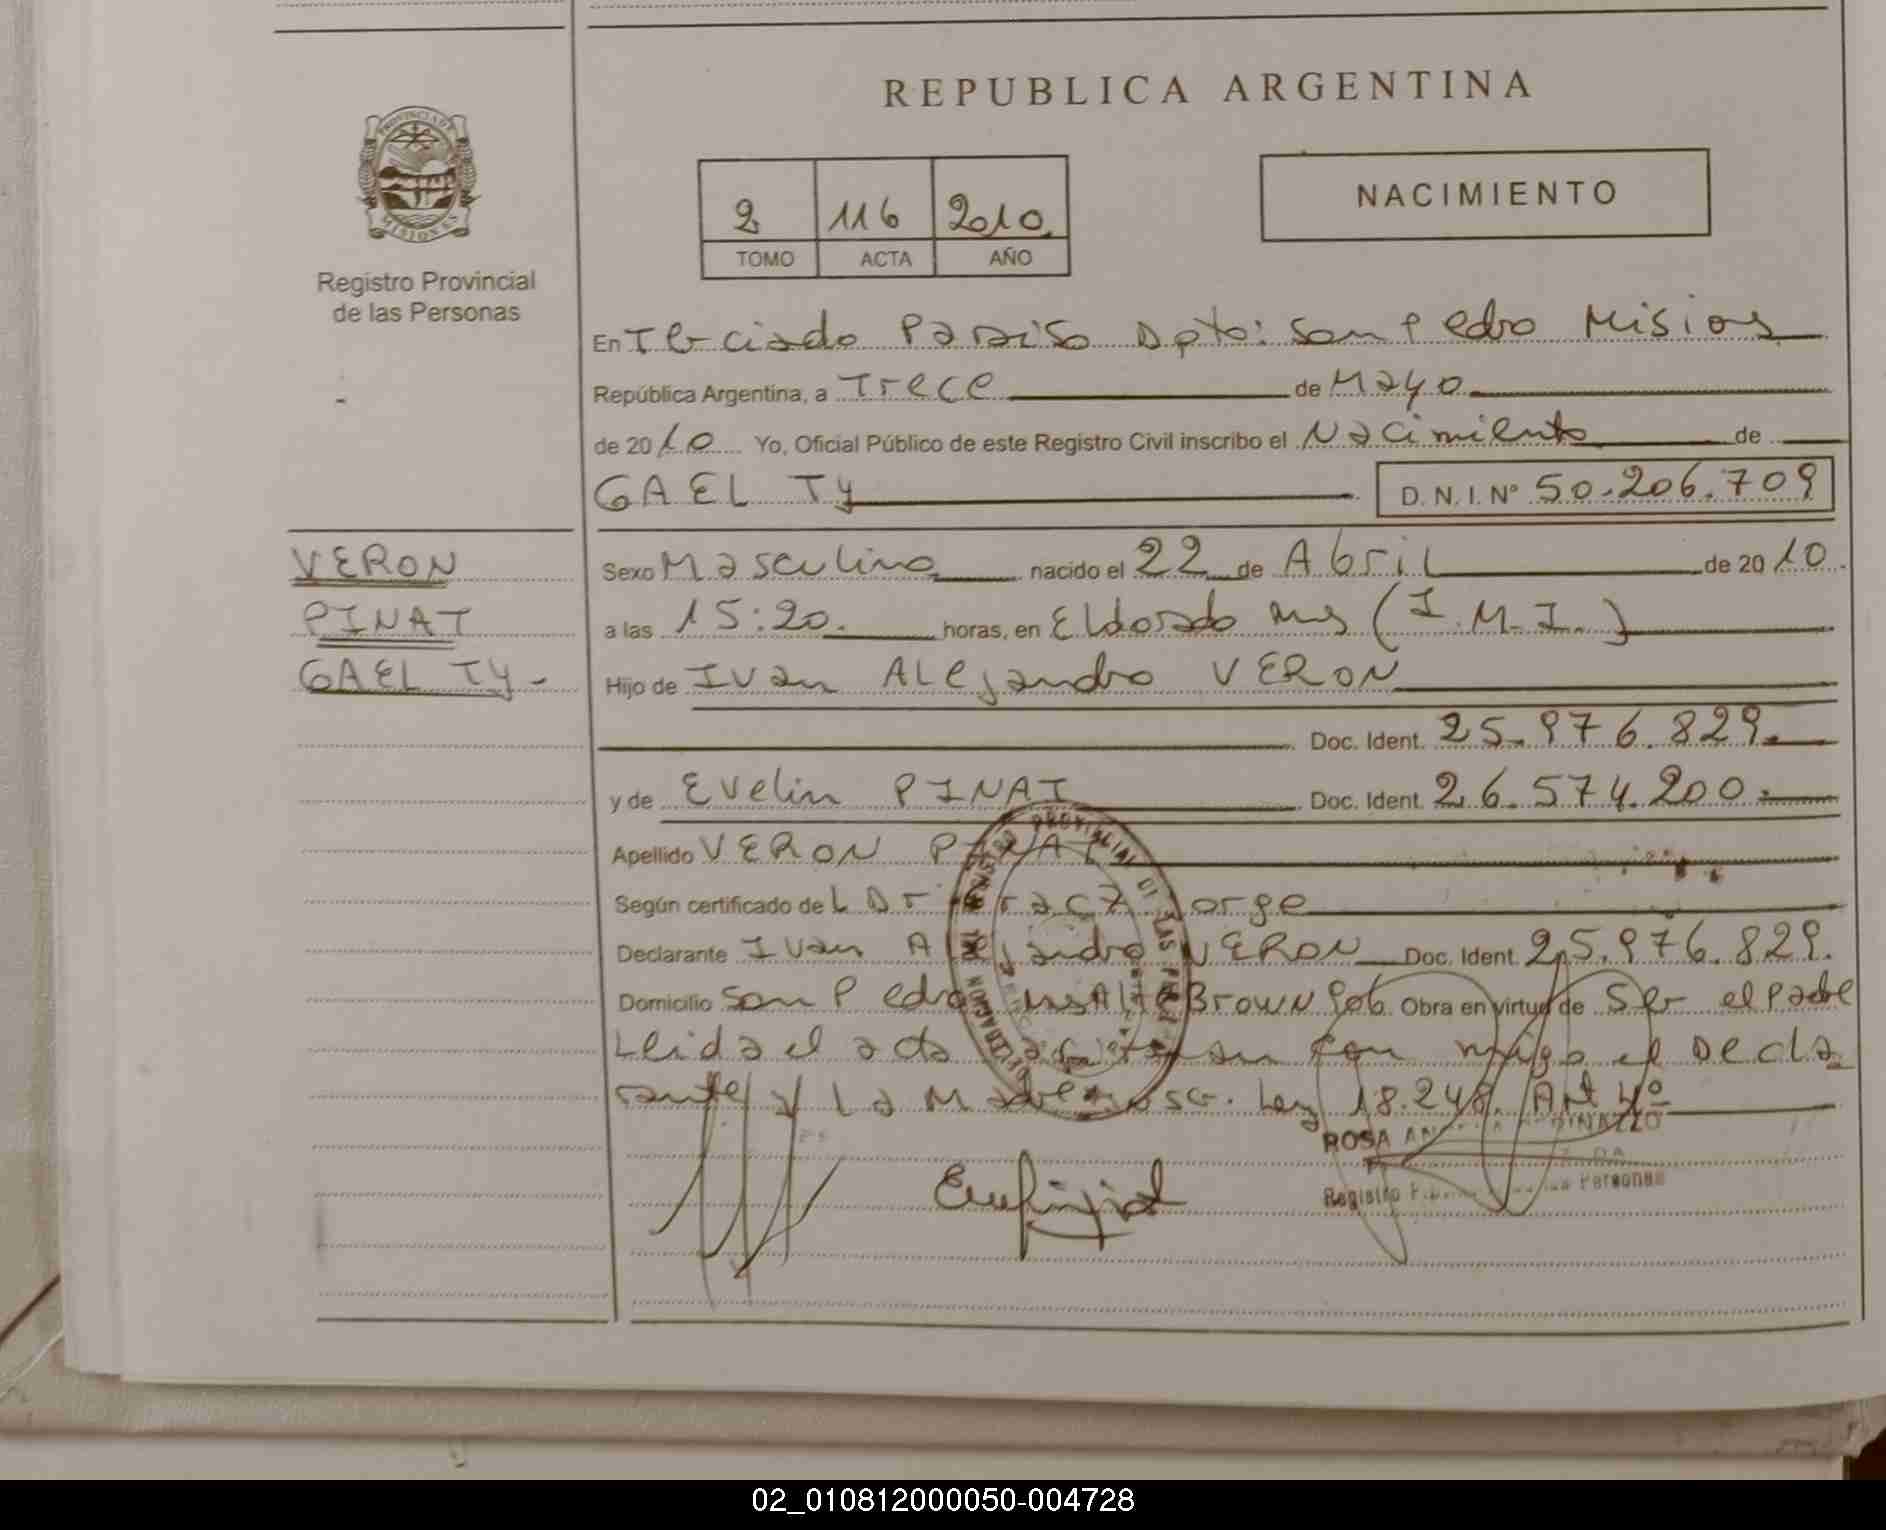 REPUBLICA ARGENTINA
PROVINCIA DE
MISIONES
Registro Provincial
de las Personas
2 116 2010.
TOMO ACTA AÑO
NACIMIENTO
En Terciado Paraiso Dpto: San Pedro Misiones
República Argentina, a Trece de Mayo
de 2010 Yo, Oficial Público de este Registro Civil inscribo el Nacimiento de
GAEL TY D.N.I. Nº 50.206.709
VERON
PINAT
GAEL TY-
Sexo Masculino nacido el 22 de Abril de 2010.
a las 15:20. horas, en Eldorado Mns (I.M.I.)
Hijo de Ivan Alejandro VERON
Doc. Ident. 25.976.829.
y de Evelin PINAT Doc. Ident. 26.574.200.
Apellido VERON PINAT
Según certificado de L Dr. Jorge
Declarante Ivan Alejandro VERON Doc. Ident. 25.976.829.
Domicilio San Pedro Mns Alte Brown 906 Obra en virtud de Ser el padre
Leida el acta con migo el Decla
rante y La Madre Ley 18.248. Art 4º
ROSA
Registro Personas
02_010812000050-004728